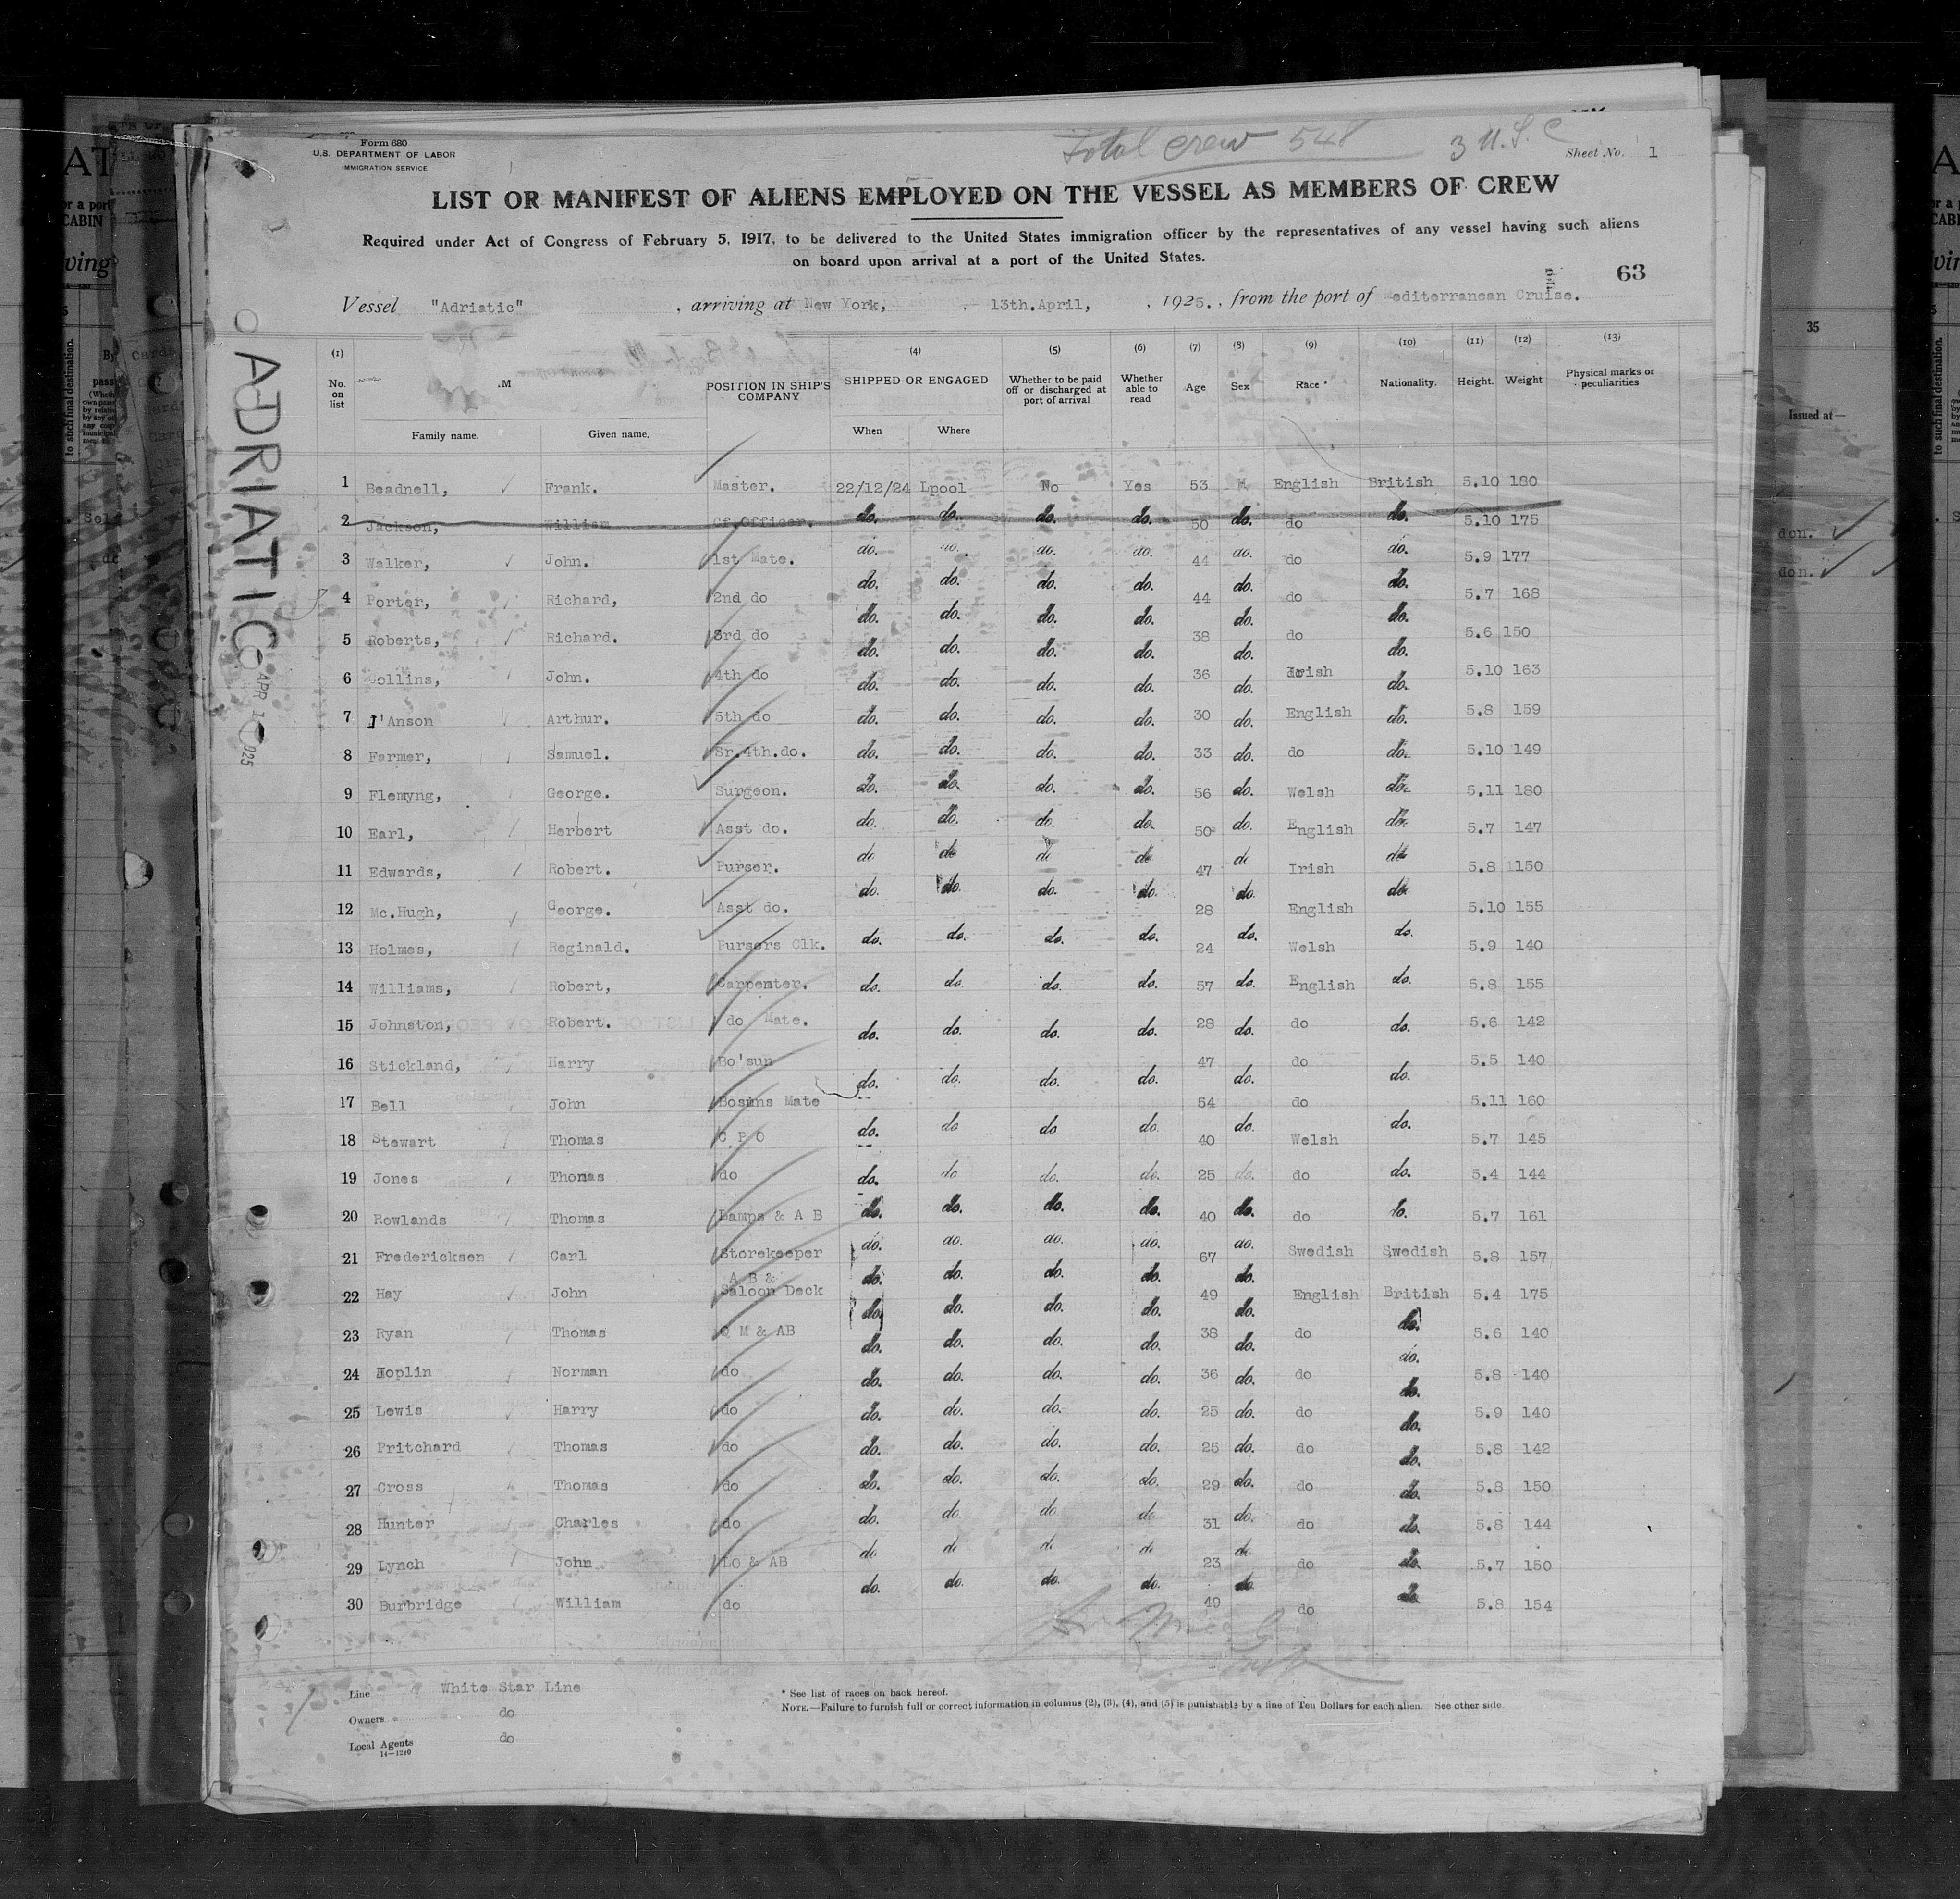 Total crew 548
3 U.S.C
Form 680
U.S. DEPARTMENT OF LABOR
IMMIGRATION SERVICE
Sheet No. 1
LIST OR MANIFEST OF ALIENS EMPLOYED ON THE VESSEL AS MEMBERS OF CREW
Required under Act of Congress of February 5, 1917, to be delivered to the United States immigration officer by the representatives of any vessel having such aliens
on board upon arrival at a port of the United States.
63
Vessel "Adriatic" , arriving at New York, 13th.April, , 1925. , from the port of Mediterranean Cruise.
ADRIATIC
(1) (4) (5) (6) (7) (8) (9) (10) (11) (12) (13)
No. on list
Family name. Given name.
POSITION IN SHIP'S COMPANY
SHIPPED OR ENGAGED
When Where
Whether to be paid off or discharged at port of arrival
Whether able to read
Age Sex Race * Nationality. Height. Weight
Physical marks or peculiarities
1 Beadnell, Frank. Master. 22/12/24 Lpool No Yes 53 M English British 5.10 180
2 Jackson, William Cf.Officer. do. do. do. do. 50 do. do do. 5.10 175
3 Walker, John. 1st Mate. do. do. do. do. 44 do. do do. 5.9 177
4 Porter, Richard, 2nd do do. do. do. do. 44 do. do do. 5.7 168
5 Roberts, Richard. 3rd do do. do. do. do. 38 do. do do. 5.6 150
6 Collins, John. 4th do do. do. do. do. 36 do. Irish do. 5.10 163
7 I'Anson Arthur. 5th do do. do. do. do. 30 do. English do. 5.8 159
8 Farmer, Samuel. Sr.4th.do. do. do. do. do. 33 do. do do. 5.10 149
9 Flemyng, George. Surgeon. do. do. do. do. 56 do. Welsh do. 5.11 180
10 Earl, Herbert Asst do. do. do. do. do. 50 do. English do. 5.7 147
11 Edwards, Robert. Purser. do do do do 47 do Irish do 5.8 150
12 Mc.Hugh, George. Asst do. do. do. do. do. 28 do. English do. 5.10 155
13 Holmes, Reginald. Pursers Clk. do. do. do. do. 24 do. Welsh do. 5.9 140
14 Williams, Robert, Carpenter. do. do. do. do. 57 do. English do. 5.8 155
15 Johnston, Robert. do Mate. do. do. do. do. 28 do. do do. 5.6 142
16 Stickland, Harry Bo'sun do. do. do. do. 47 do. do do. 5.5 140
17 Bell John Bosuns Mate 54 do 5.11 160
18 Stewart Thomas C P O do. do do do. 40 do. Welsh do. 5.7 145
19 Jones Thomas do do. do do. do. 25 do. do do. 5.4 144
20 Rowlands Thomas Lamps & A B do. do. do. do. 40 do. do do. 5.7 161
21 Fredericksen Carl Storekeeper do. do. do. do. 67 do. Swedish Swedish 5.8 157
22 Hay John A B & Saloon Deck do. do. do. do. 49 do. English British 5.4 175
23 Ryan Thomas Q M & AB do. do. do. do. 38 do. do do. 5.6 140
24 Hoplin Norman do do. do. do. do. 36 do. do do. 5.8 140
25 Lewis Harry do do. do. do. do. 25 do. do do. 5.9 140
26 Pritchard Thomas do do. do. do. do. 25 do. do do. 5.8 142
27 Cross Thomas do do. do. do. do. 29 do. do do. 5.8 150
28 Hunter Charles do do. do do do 31 do. do do. 5.8 144
29 Lynch John LO & AB do do do do 23 do do do. 5.7 150
30 Burbridge William do do. do. do. do. 49 do. do do. 5.8 154
Line White Star Line
Owners do
Local Agents do
14—1240
* See list of races on back hereof.
NOTE.—Failure to furnish full or correct information in columns (2), (3), (4), and (5) is punishable by a fine of Ten Dollars for each alien. See other side.
35
Issued at—